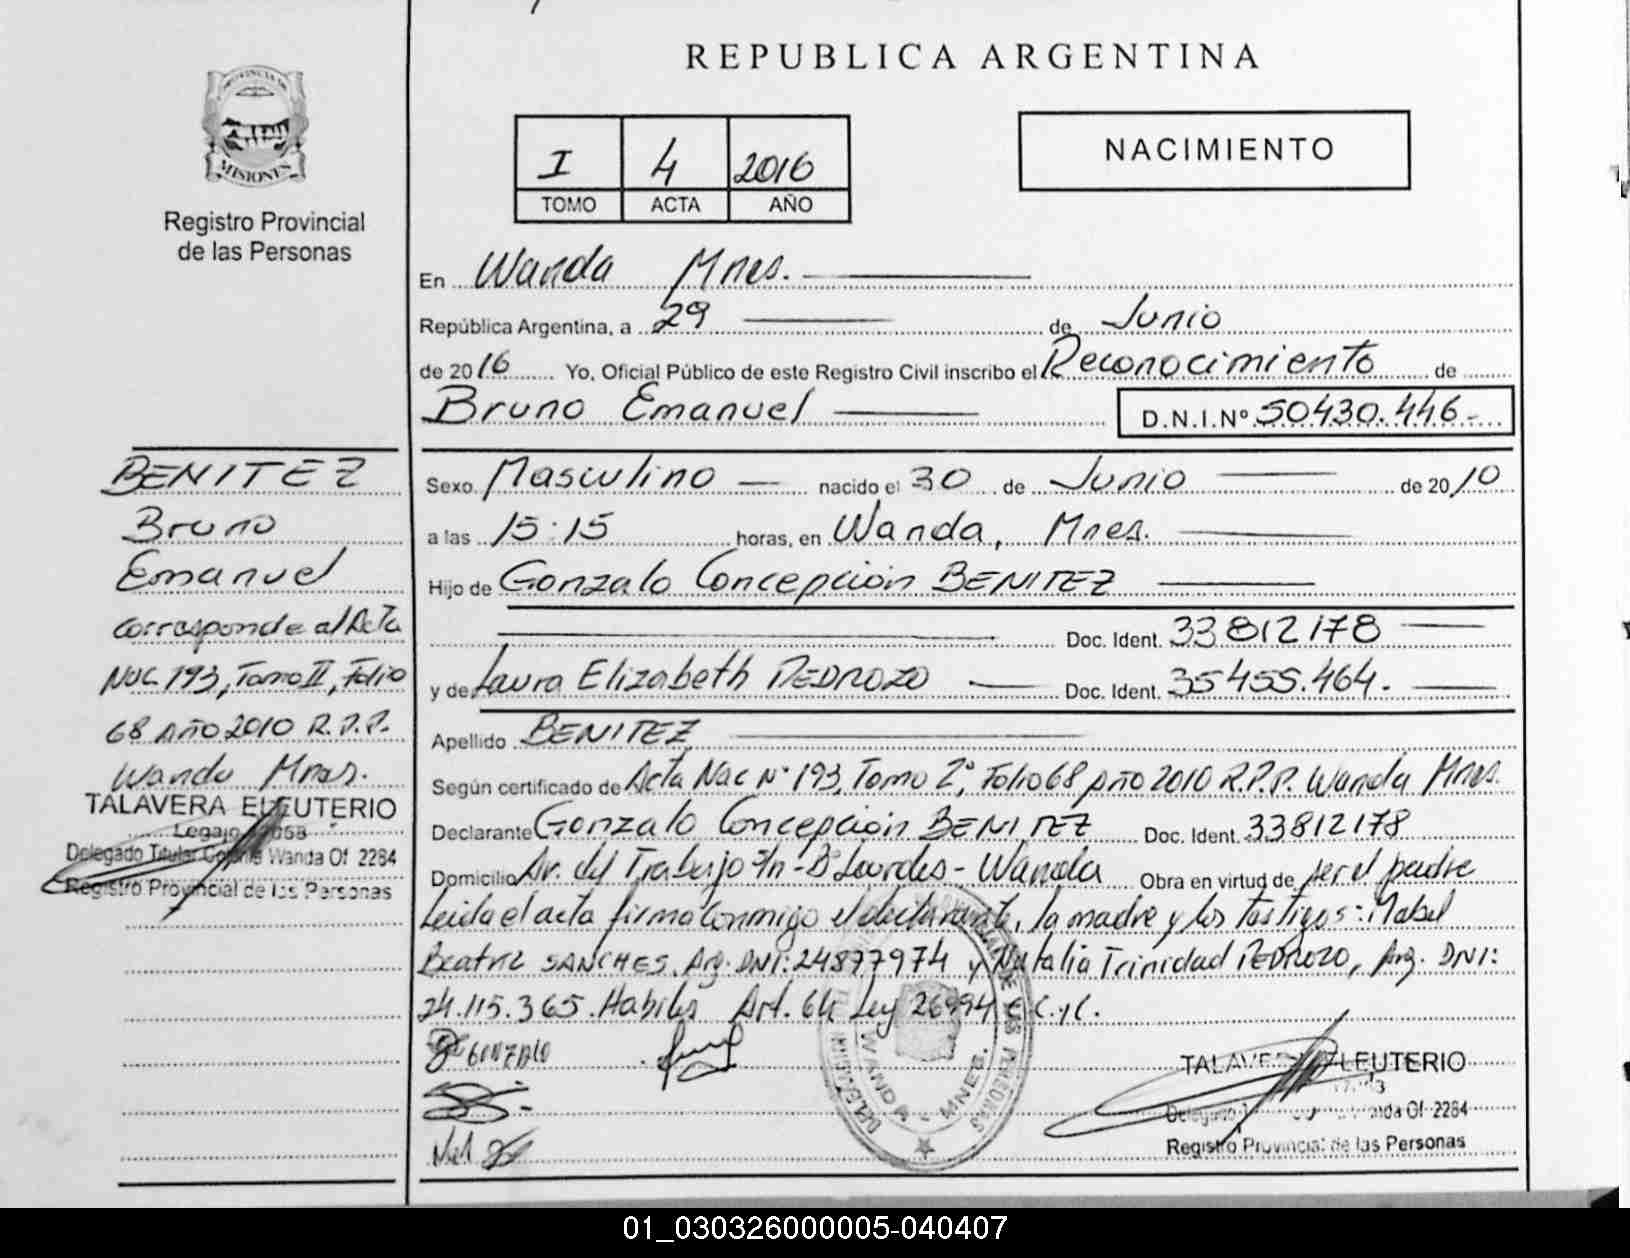 REPUBLICA ARGENTINA
PROVINCIA DE
MISIONES
Registro Provincial
de las Personas
I 4 2016
TOMO ACTA AÑO
NACIMIENTO
En Wanda Mnes.
República Argentina, a 29 de Junio
de 2016 Yo, Oficial Público de este Registro Civil inscribo el Reconocimiento de
Bruno Emanuel D.N.I.Nº 50430.446.-
BENITEZ
Bruno
Emanuel
corresponde al Acta
Nac 193, Tomo II, Folio
68 Año 2010 R.P.P.
Wanda Mnes.
TALAVERA ELEUTERIO
Legajo
Delegado Titular Wanda Of 2284
Registro Provincial de las Personas
Sexo Masculino nacido el 30 de Junio de 2010
a las 15:15 horas, en Wanda, Mnes.
Hijo de Gonzalo Concepción BENITEZ
Doc. Ident. 33812178
y de Laura Elizabeth PEDROZO Doc. Ident. 35455.464.
Apellido BENITEZ
Según certificado de Acta Nac Nº 193, Tomo 2º, Folio 68 Año 2010 R.P.P. Wanda Mnes.
Declarante Gonzalo Concepción BENITEZ Doc. Ident. 33812178
Domicilio Av. del Trabajo S/n - Bº Lourdes - Wanda Obra en virtud de ser el padre
Leída el acta firma conmigo el declarante, la madre y los testigos: Mabel
Beatriz SANCHES, Arg. DNI: 24877974 y Natalia Trinidad PEDROZO, Arg. DNI:
24.115.365. Habiles Art. 64 Ley 26994 C.C. y C.
GONZALO
WANDA - MNES.
TALAVERA ELEUTERIO
Of 2284
Registro Provincial de las Personas
01_030326000005-040407